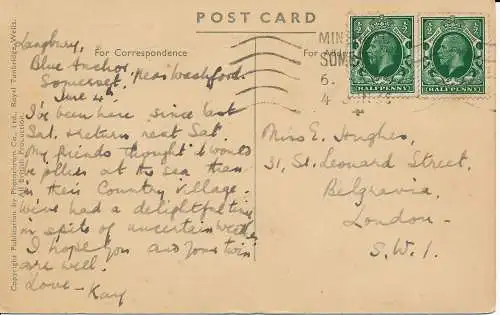 POST CARD
For Correspondence
For Address
Langbury,
Blue Anchor,
Somerset, near Washford.
June 4th.
I've been here since last
Sat. & return next Sat.
My friends thought I would
be jollier at the sea than
in their Country Village.
We've had a delightful time
in spite of uncertain weather.
I hope you and your twin
are well.
Love - Kay
MIN
SOM
6.
4
HALFPENNY
HALFPENNY
Miss E. Hughes,
31, St. Leonard Street,
Belgravia,
London -
S.W.1.
Copyright Publication by Photochrom Co., Ltd., Royal Tunbridge Wells.
All British Production.